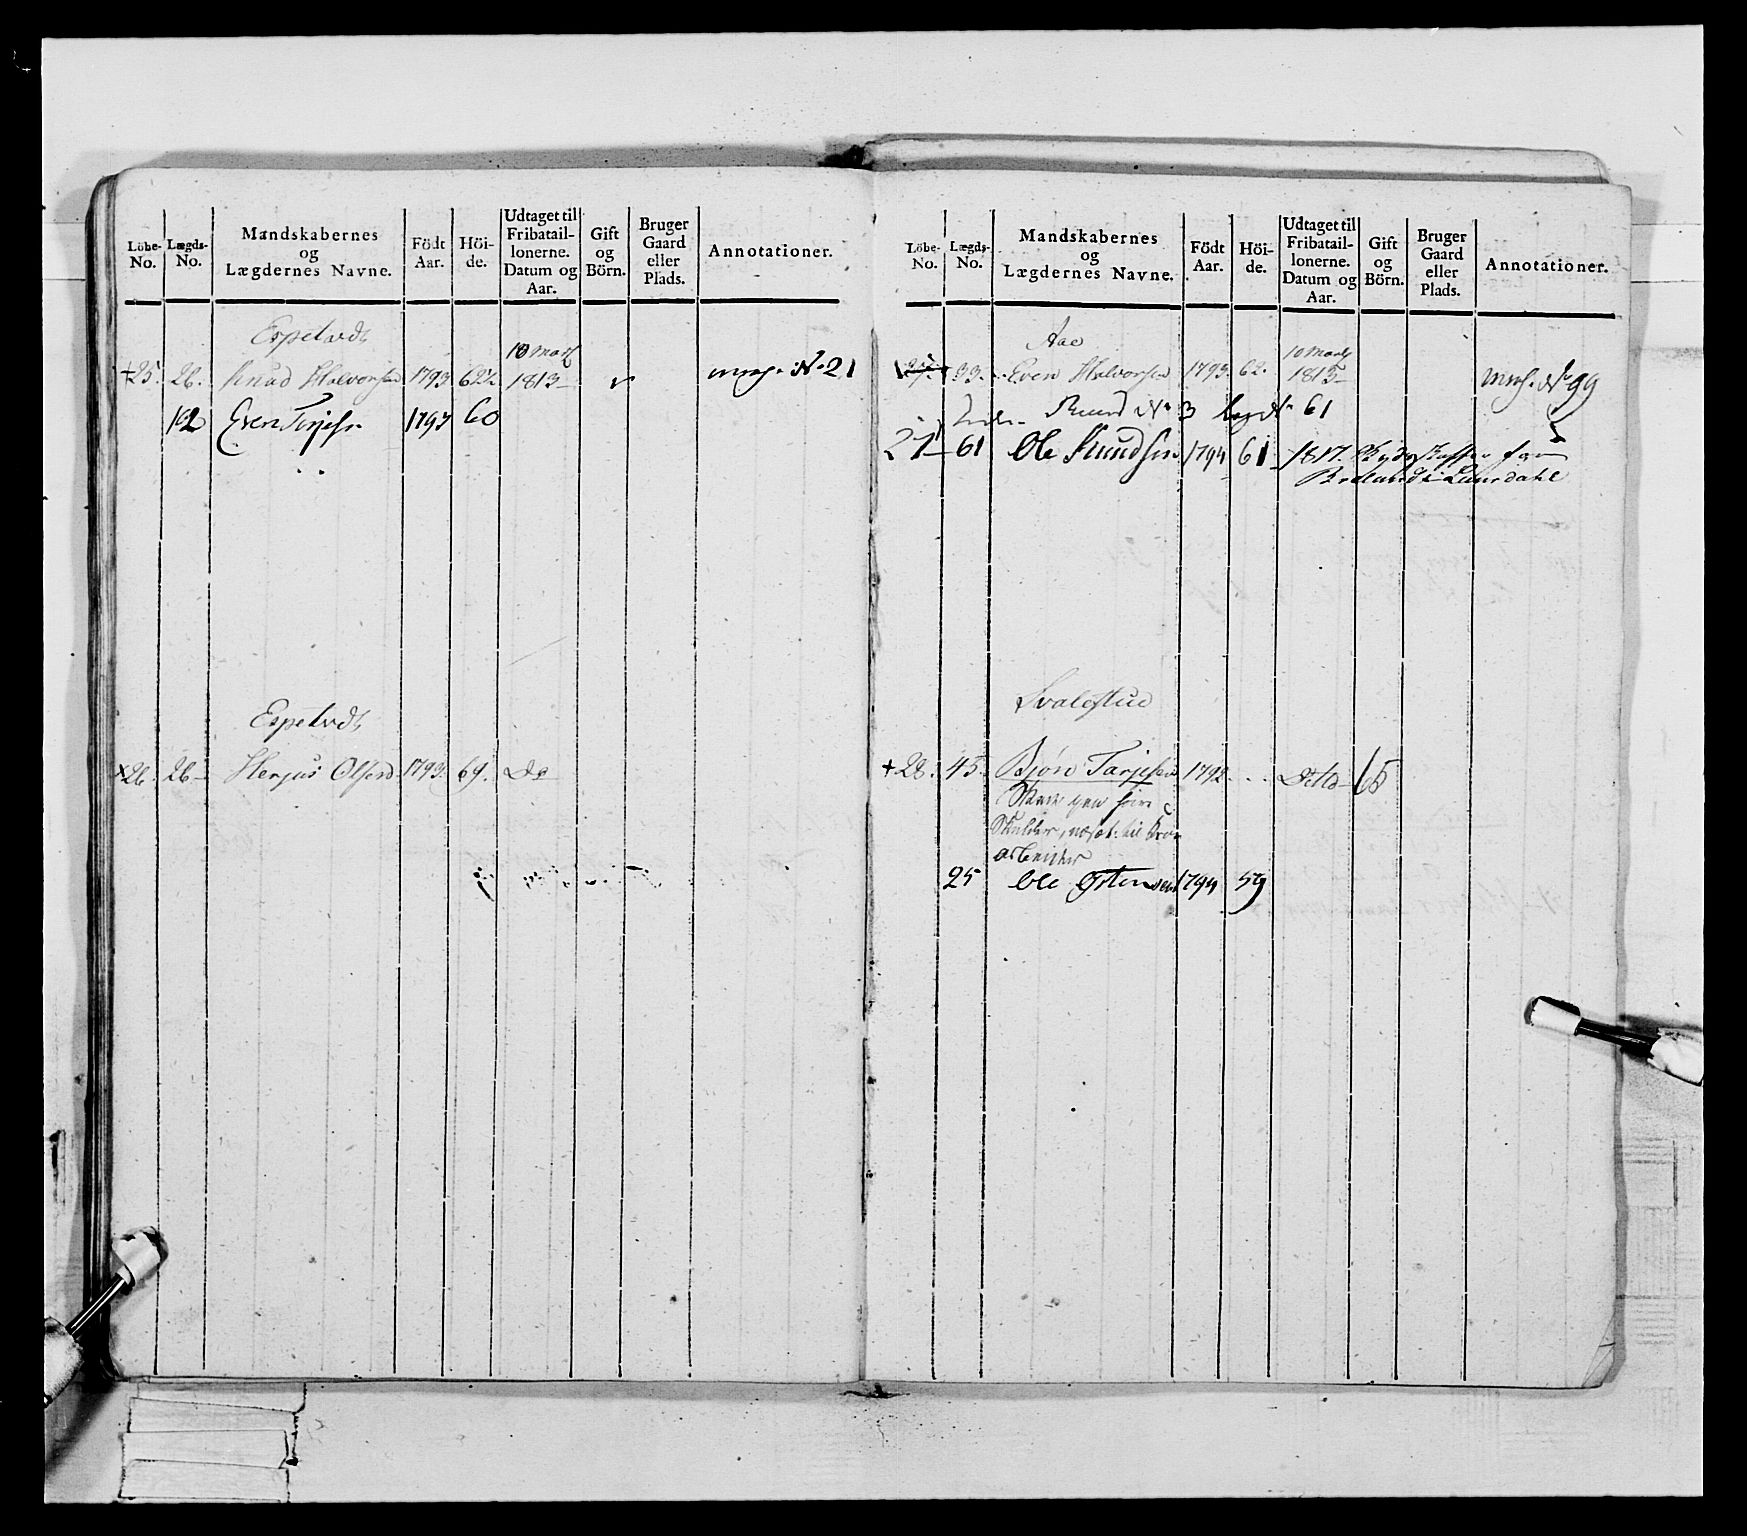 Löbe- No. | Lægds- No. | Mandskabernes og Lægdernes Navne. | Födt Aar. | Höi- de. | Udtaget til Fribatail- lonerne. Datum og Aar. | Gift og Börn. | Bruger Gaard eller Plads. | Annotationer.
Espetvedt
10 Mart
+25. 26. Knud Halvorsen 1793 62½ 1813 No 21
102 Even Torjesn 1793 60
Espetvedt
×26. 26 Herjus Olsen 1793 69. Do
Löbe- No. | Lægds- No. | Mandskabernes og Lægdernes Navne. | Födt Aar. | Höi- de. | Udtaget til Fribatail- lonerne. Datum og Aar. | Gift og Börn. | Bruger Gaard eller Plads. | Annotationer.
Aae
10 Mart
27. 93. Even Halvorsen 1793. 62. 1813 No 99
No 3 61
27 61 Ole Knudsen 1794 61 1817. fra
i Laurdahl
Svalestue
+28. 45. Bjørn Tarjesen 1792 Dito 65
Skulder, til
arbeider
25 Ole Østensen 1794 59